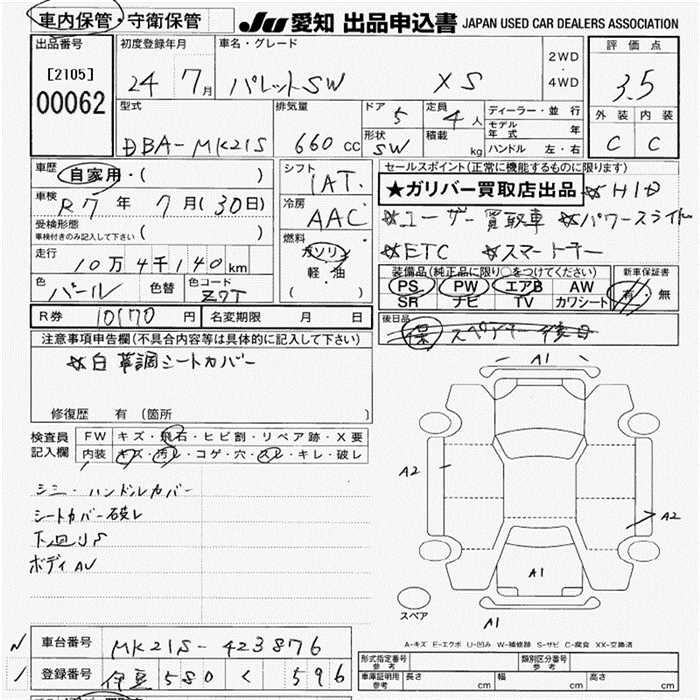 車内保管・守衛保管
JU 愛知 出品申込書 JAPAN USED CAR DEALERS ASSOCIATION
出品番号
[2105]
00062
初度登録年月
24 7月
車名・グレード
パレットSW XS
2WD
・
4WD
評価点
3.5
外装 内装
C C
型式
DBA-MK21S
排気量
660 cc
ドア 5
形状 SW
定員 4人
積載 kg
ディーラー・並行
モデル年式 年
ハンドル 左・右
車歴
自家用・( )
車検 R7年 7月(30日)
受検形態
車検付きのみ記入して下さい ( )
走行
10万4千140km
色 パール
色替
色コード Z7T
シフト
IAT
冷房
AAC
燃料
ガソリン
軽・油
( )
セールスポイント(正常に機能するものに限ります)
★ガリバー買取店出品 ☆HID
☆ユーザー買取車 ☆パワースライド
☆ETC ☆スマートキー
装備品(純正品に限り○をつけてください)
PS PW エアB AW
SR ナビ TV カワシート
新車保証書
有・無
R券 10170円
名変期限 月 日
後日品
保 スペアキー後日
注意事項申告欄(不具合内容等は具体的に記入して下さい)
☆白革調シートカバー
修復歴 有(箇所 )
検査員
記入欄
FW キズ・飛石・ヒビ割・リペア跡・X要
内装 キズ・汚レ・コゲ・穴・スレ・キレ・破レ
シミ・ハンドルカバー
シートカバー破レ
下廻りS
ボディAU
A1
A2
A2
A1
A1
スペア
A-キズ E-エクボ U-凹み W-補修跡 S-サビ C-腐食 XX-交換済
車台番号 MK21S-423876
登録番号 伊豆 580 く 596
形式指定番号
参考
類別区分番号
参考
車庫証明用
参考
長さ cm 幅 cm 高さ cm